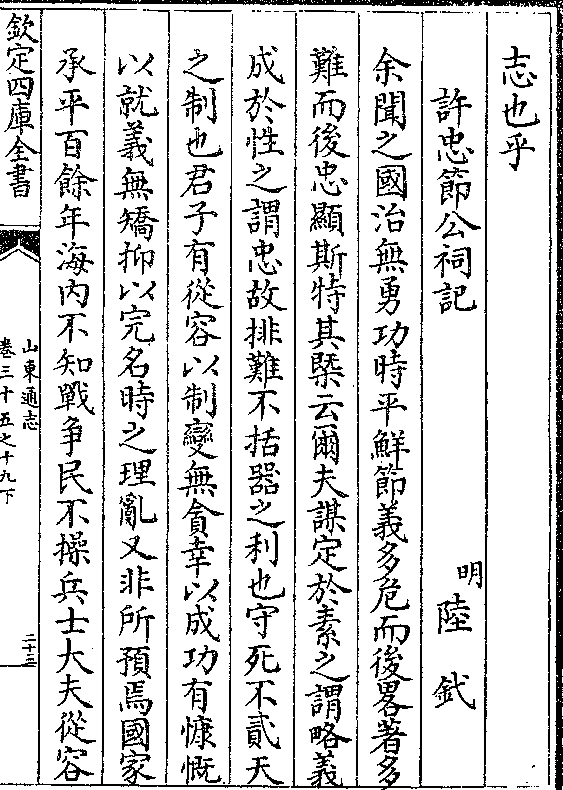 志也乎
許忠節公祠記
明陸釴
余聞之國治無勇功時平鮮節義多危而後畧著多
難而後忠顯斯特其槩云爾夫謀定於素之謂略義
成於性之謂忠故排難不括器之利也守死不貳天
之制也君子有從容以制變無貪幸以成功有慷慨
以就義無矯抑以完名時之理亂又非所預焉國家
承平百餘年海内不知戰争民不操兵士大夫從容
欽定四庫全書
山東通志
卷三十五之十九下
二十三